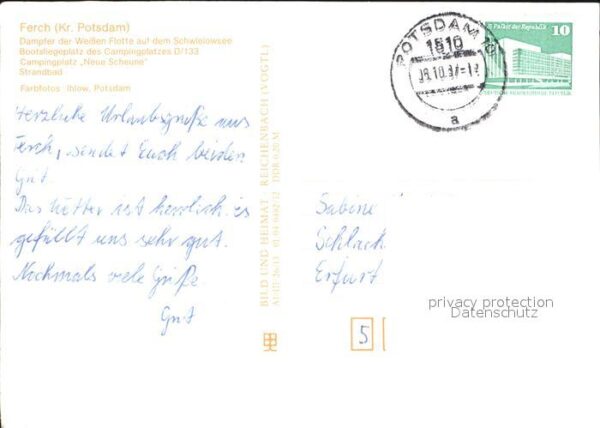 Ferch (Kr. Potsdam)
Dampfer der Weißen Flotte auf dem Schwielowsee
Bootsliegeplatz des Campingplatzes D/133
Campingplatz „Neue Scheune"
Strandbad
Farbfotos Ihlow, Potsdam
Herzliche Urlaubsgrüße aus
Ferch, sendet Euch beiden
Gut
Das Wetter ist herrlich, es
gefällt uns sehr gut.
Nochmals viele Grüße
Gut
BILD UND HEIMAT · REICHENBACH (VOGTL)
POTSDAM
1510
a
Palast der Republik
10
Sabine
Schlach
Erfurt
privacy protection
Datenschutz
5